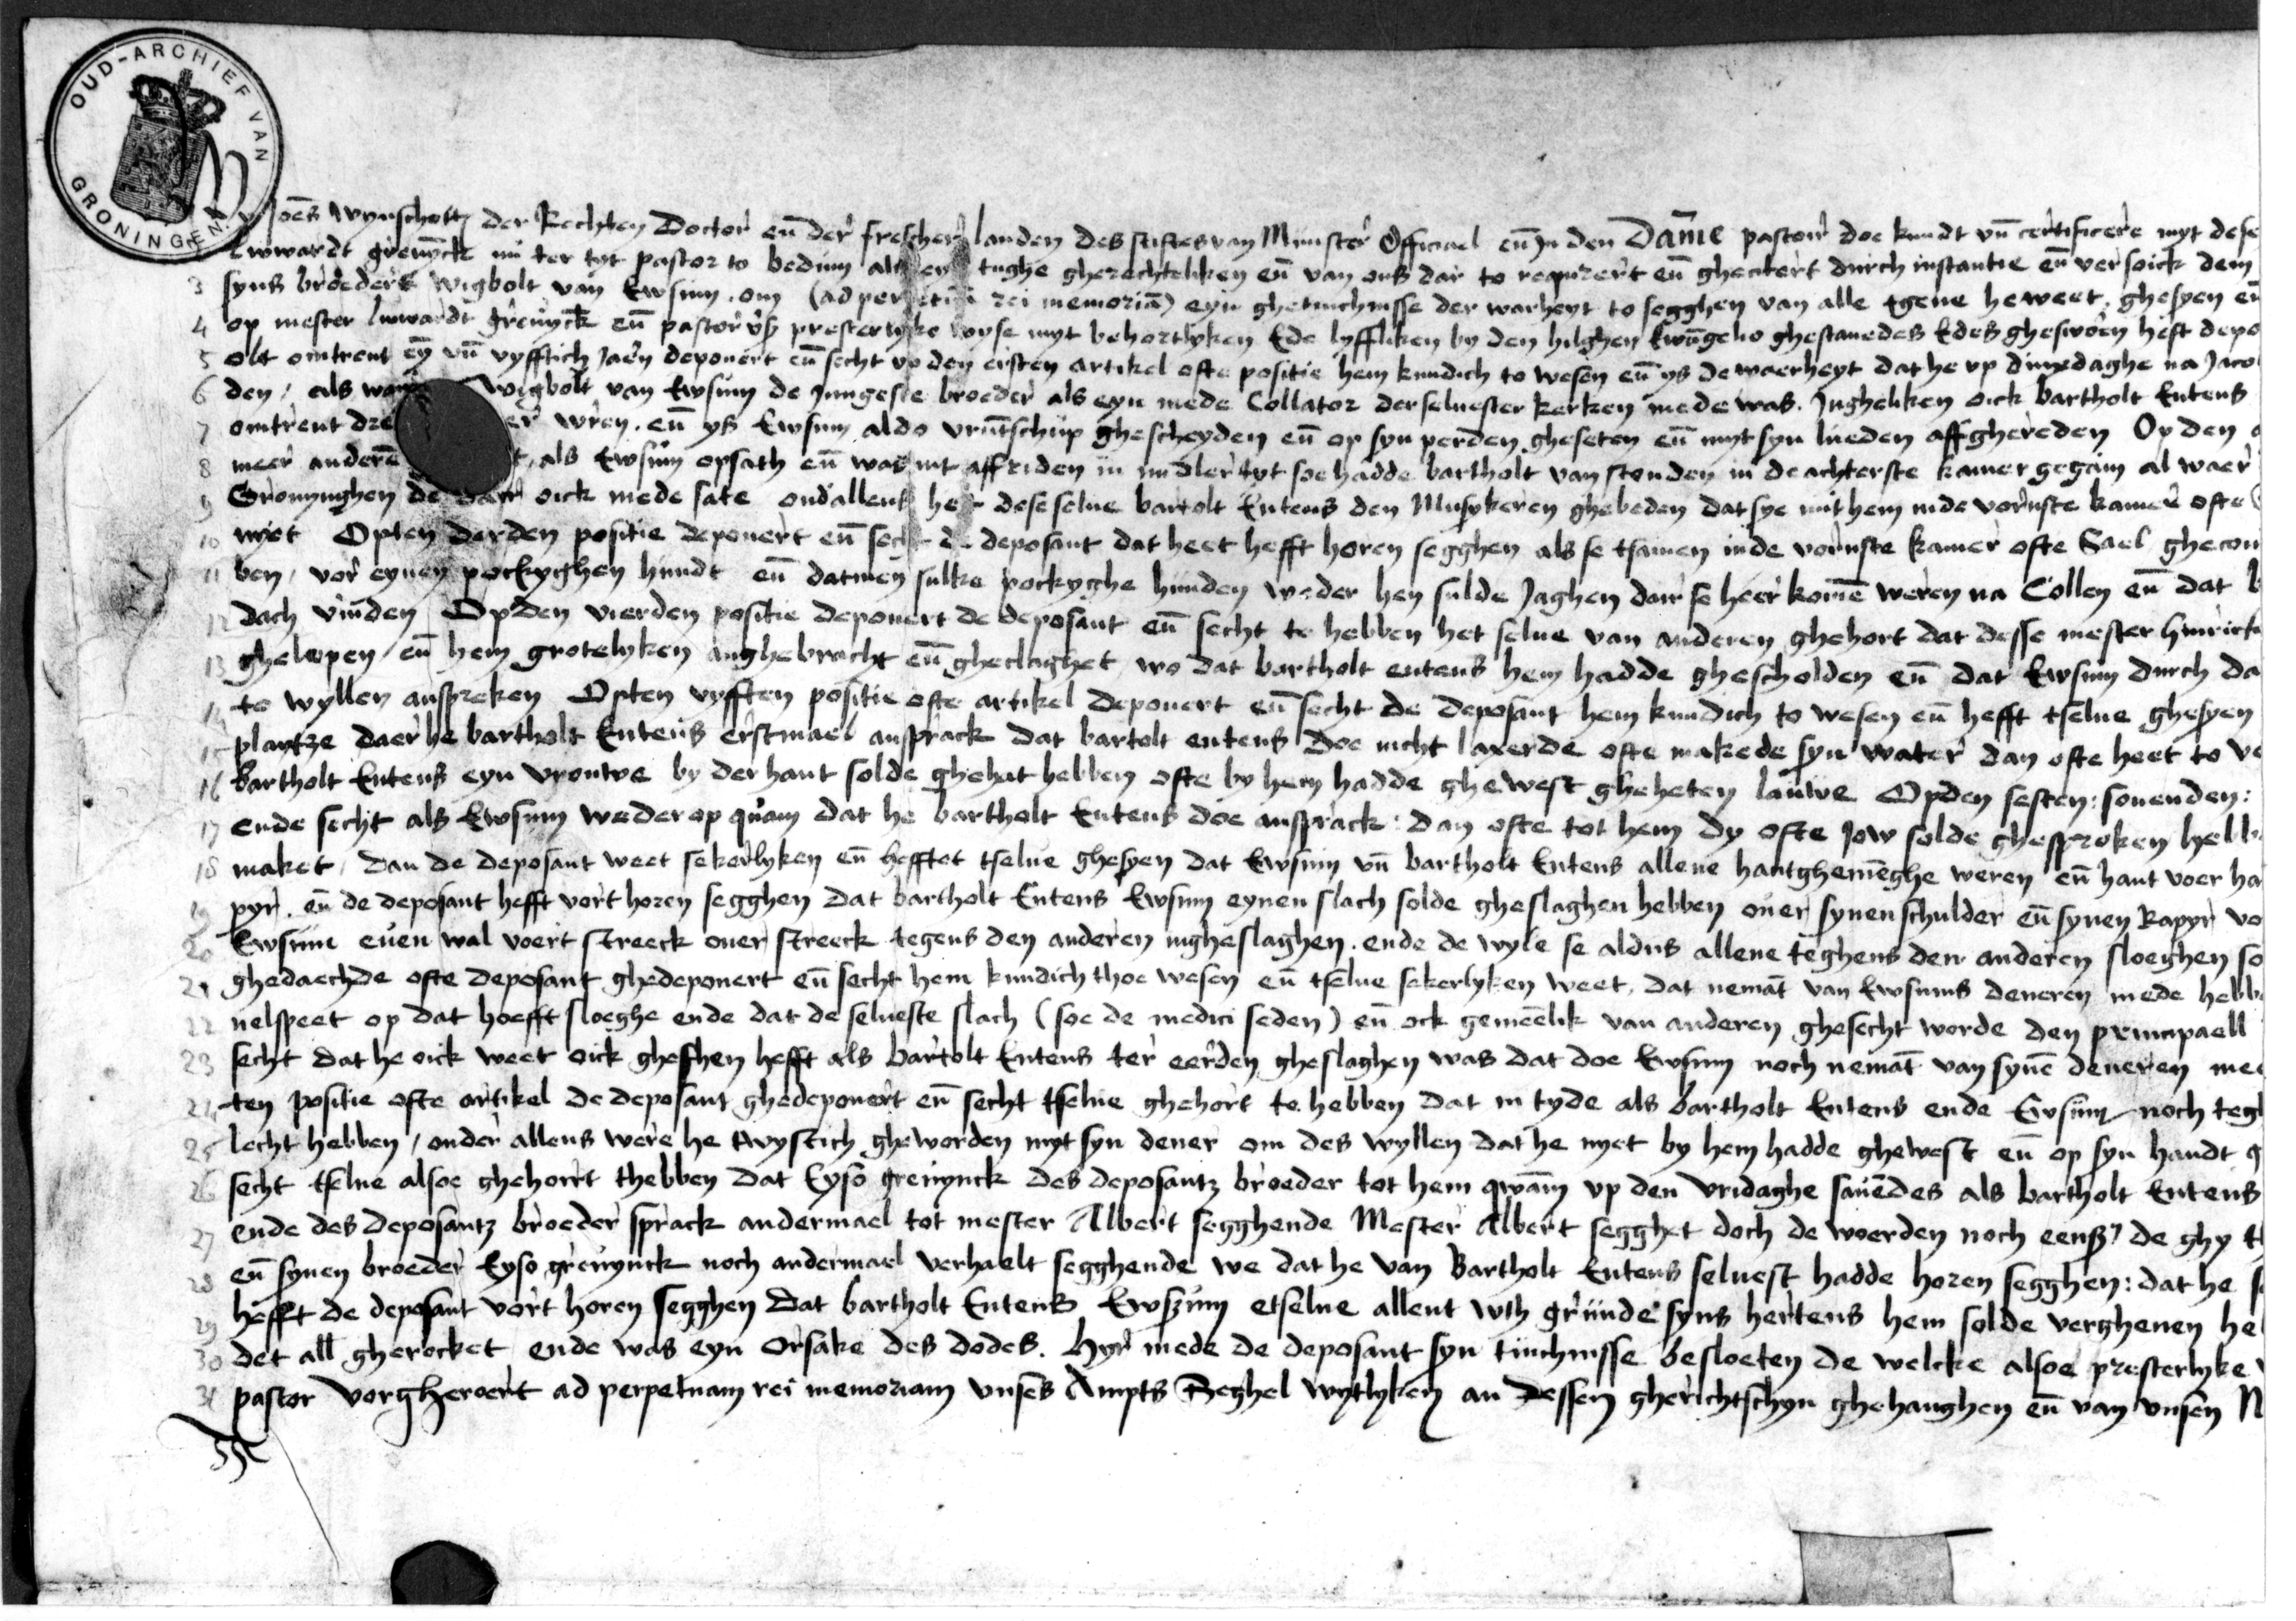 OUD-ARCHIEF VAN GRONINGEN
Joēs Wynschott der Rechten Doctor eñ der frescher landen des stiftes van Munster Official eñ In den Damme pastoir doe kundt vñ certificere myt dese
Luwardt grevinck nu ter tyt pastor to bedum als en tughe gherechteliken eñ van ons dar to requirert eñ ghecitert durch instantie eñ versoick dem
3 syns broeders wigbolt van Ewsum. om (ad perpetuā rei memoriā) eyn ghetuchnisse der warheyt to segghen van alle tgene he weet, ghesyen eñ
4 op mester luwardt grevyck eñ pastor vß presterlyke wyse myt behorlyken Ede lyffliken by den hilghen Ewāgelio ghestauedes Edes ghesworen heft depo
5 olt omtrent eȳ vñ vyfftich Jaer deponert eñ secht vp den ersten artikel ofte positie hem kundich to wesen eñ ys de waerheyt dat he vp dinxdaghe na Jaco
6 den, als wan wigbolt van Ewsum de Jungeste broeder als eyn mede Collator der seluester kerken mede was. Jngheliken oick bartholt Entens
7 omtrent dre er vren. eñ ys Ewsum aldo vruntschup ghescheyden eñ op syn perden gheseten eñ myt syn lueden affghereden Op den
8 meer anderē t, als Ewsum opsath eñ was int affriden in midler tyt soe hadde bartholt van stonden in de achterste kamer gegaen al waer
9 Gronynghen de oick mede sate ond' allens heft dese selue bartolt Entens den Musykeren ghebeden dat sye mit hem in de vornste kamer ofte
10 nyet Opten derden positie deponert eñ secht de deposant dat heet hefft horen segghen als se tsamen in de vornste kamer ofte Sael ghecom
11 ben, vor eynen pockyghen hundt eñ datmen sulke pockyghe hunden weder hen sulde Jaghen dair se heer komē weren na Collen eñ dat b
12 dach vinden Op den vierden positie deponert de deposant eñ secht te hebben het selue van anderen ghehort dat desse mester hinrick
13 ghelopen, eñ hem grotelyken anghebracht eñ gheclaghet, wo dat bartholt entens hem hadde ghescholden eñ dat Ewsum durch da
14 to wyllen anspreken Opten vyfften positie ofte artikel deponert eñ secht de deposant hem kundich to wesen eñ hefft tselue ghesyen
15 plaetze daer he bartholt Entens erstmael ansprack dat bartolt entens doe nicht laxerde ofte makede syn water dan ofte heet to ve
16 bartholt Entens eyn vrouwe by der hant solde ghehat hebben ofte by hem hadde ghewest gheheten lauwe Opden sesten: souenden:
17 ende secht als Ewsum weder op quam dat he bartholt Entens doe ansprack: dan ofte tot hem dy ofte Jow solde ghesproken hebb
18 maket, dan de deposant weet sekerlyken eñ hefftet tselue ghesyen dat Ewsum vñ bartholt Entens allene hantghemēghe weren eñ hant voer ha
19 pyr. eñ de deposant hefft vort horen segghen dat bartholt Entens Ewsum eynen slach solde gheslaghen hebben ouer synen schulder eñ synen kapyr vo
20 Ewsum euen wal voert streeck ouer streeck tegens den anderen ingheslaghen. ende de wyle se aldus allene teghens den anderen sloeghen so
21 ghedaechde ofte deposant ghedeponert eñ secht hem kundich thoe wesen eñ tselue sekerlyken weet, dat nemāt van Ewsums deneren mede hebb
22 nelspeet op dat hoefft sloeghe ende dat de selueste slach (soe de medici seden) eñ ock gemeēlik van anderen ghesecht worde den principaell
23 secht dat he oick weet oick gheshen hefft als bartolt Entens ter eerden gheslaghen was dat doe Ewsum noch nemāt van synē deneren mee
24 ten positie ofte artikel de deposant ghedeponert eñ secht tselue ghehort te hebben dat in tyde als bartholt Entens ende Ewsum noch tegh
25 lecht hebben, onder allens were he twystich gheworden myt syn dener om des wyllen dat he nyet by hem hadde ghewest eñ op syn handt g
26 secht tselue alsoe ghehorrt thebben dat Eyso grevynck des deposantz broeder tot hem qwam vp den vridaghe sauēdes als bartholt Entens
27 ende des deposantz broeder sprack andermael tot mester Albert segghende Mester Albert segghet doch de woerden noch eenß, de ghy t
28 eñ synen broeder Eyso grevynck noch andermael verhaelt segghende we dat he van Bartholt Entens seluest hadde horen segghen: dat he s
29 hefft de deposant vort horen segghen dat bartholt Entens Ewszum etselue allent wth grunde syns hertens hem solde vergheuen he
30 det all gherocket ende was eyn orsake des dodes. Hyr mede de deposant syn tuuchnisse besloeten de welcke alsoe presterlyke
31 pastor vorgheroert ad perpetuam rei memoriam vnses Ampts Seghel wytlyken an dessen gherichtschyn ghehanghen eñ van vnsen N